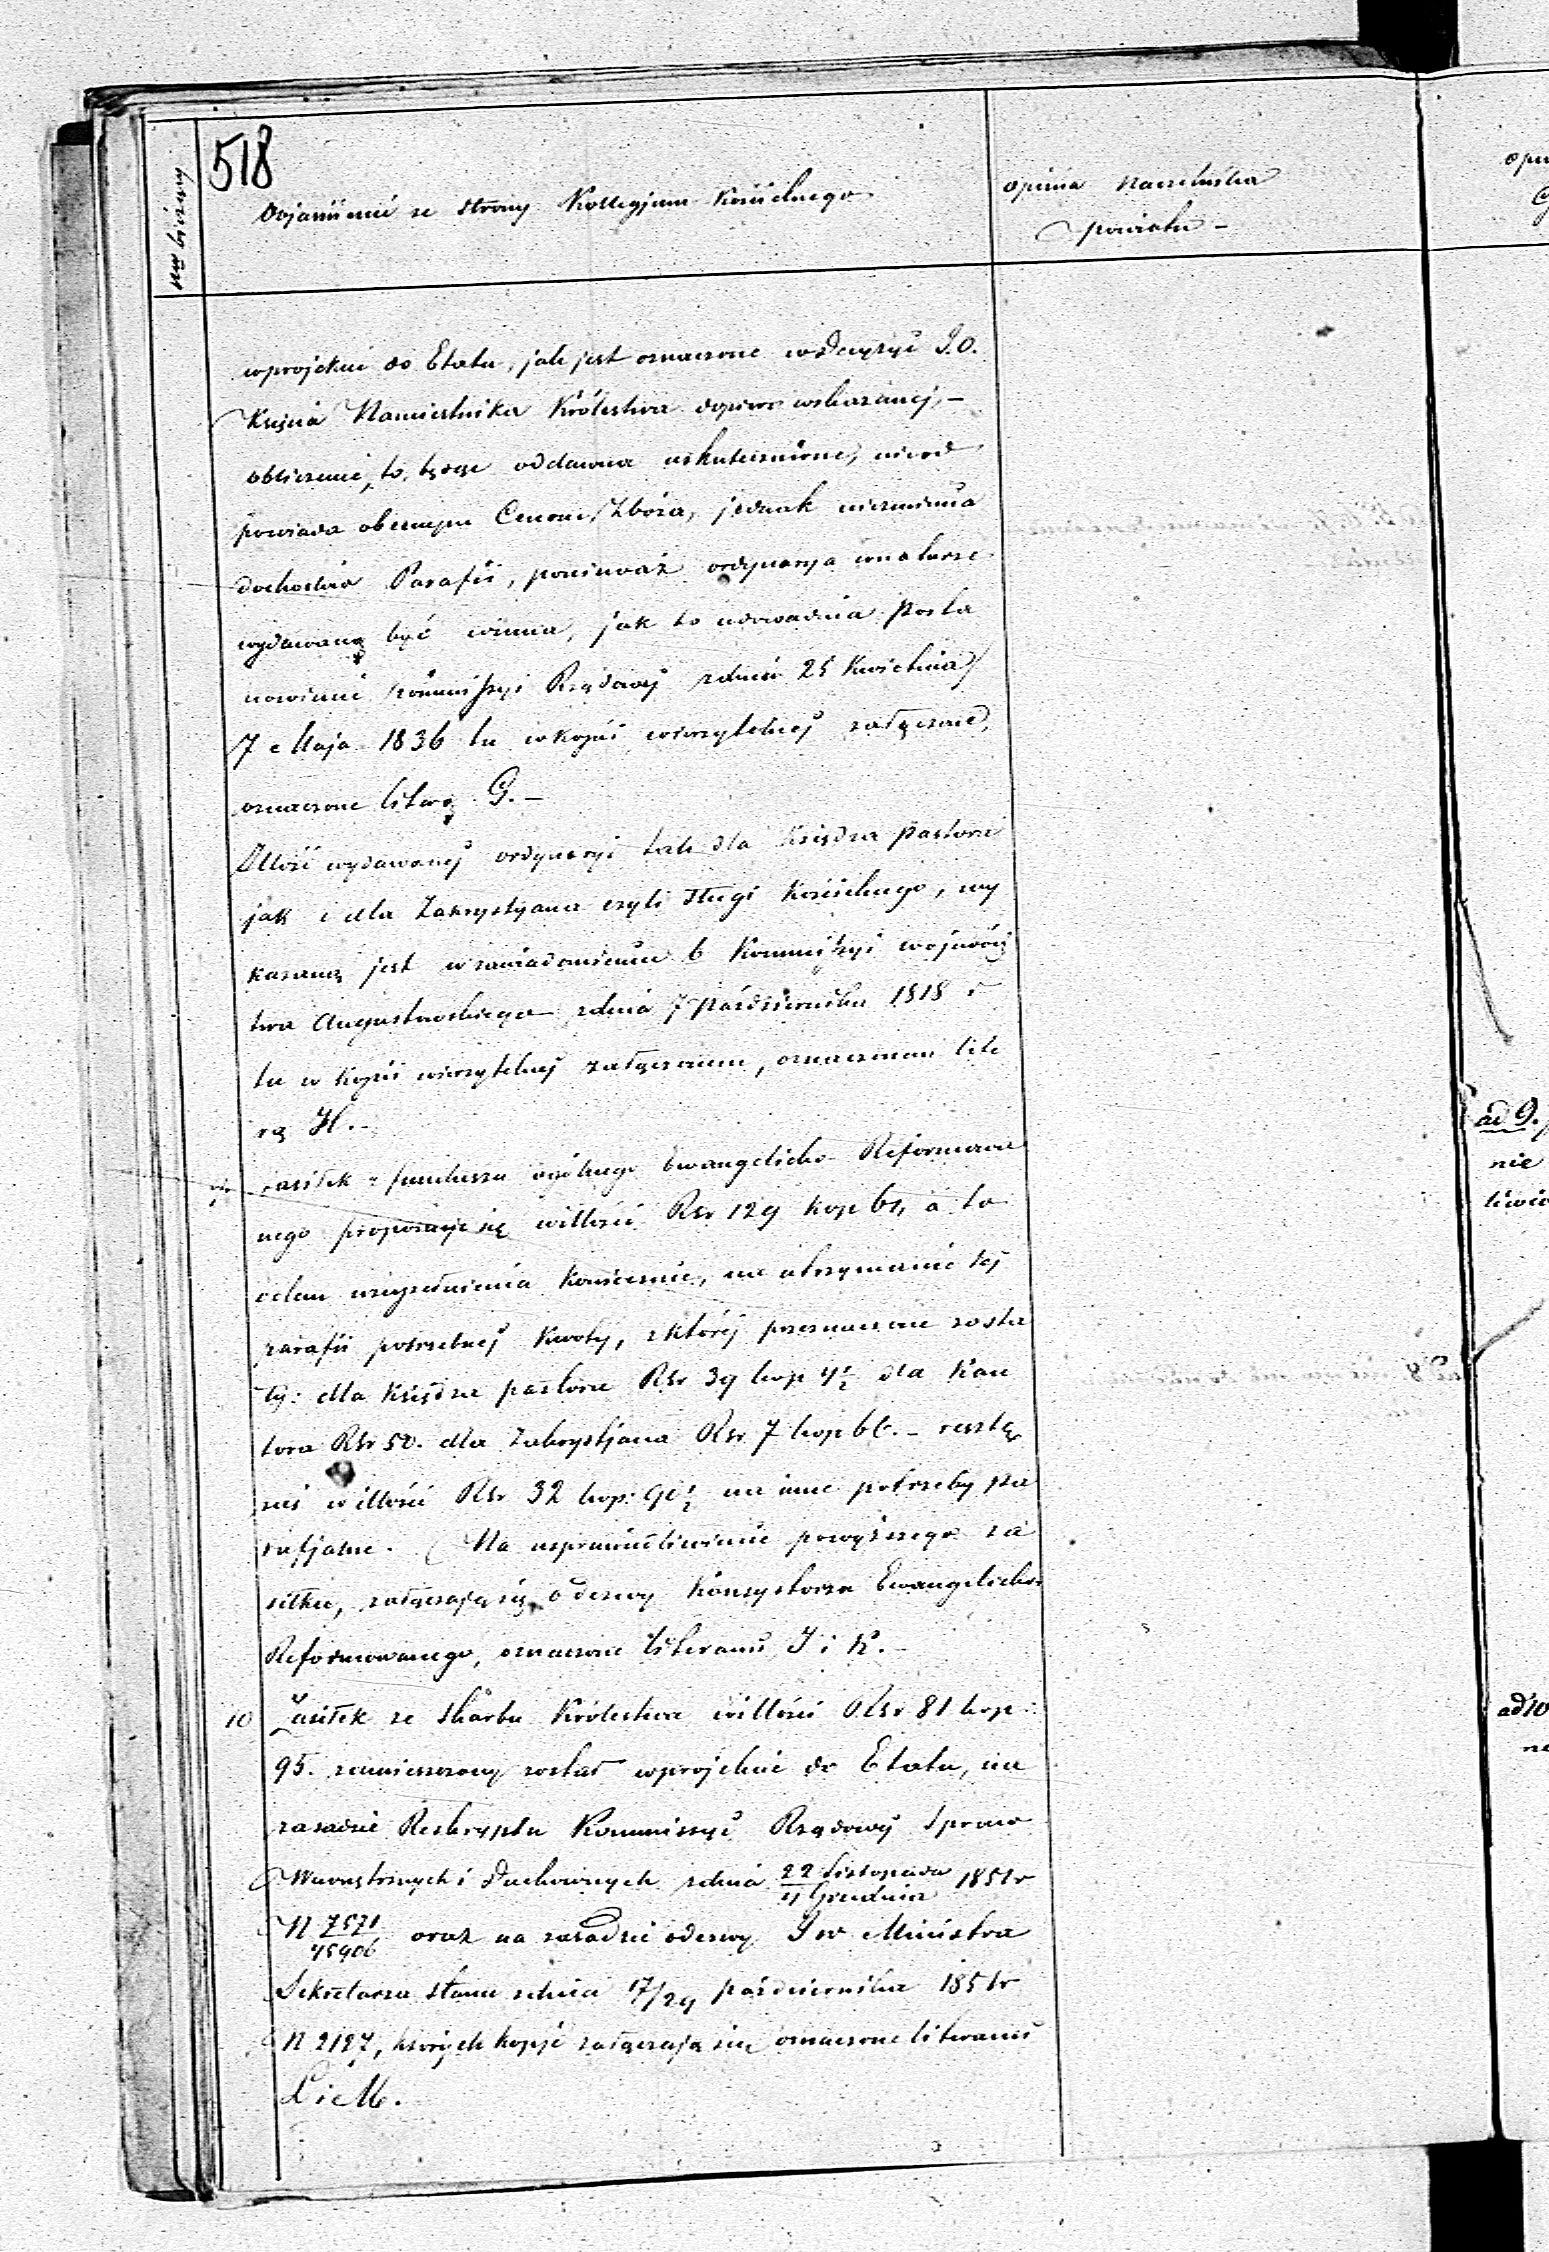 518
Nr bieżący
Objaśnienie ze strony Kollegjum Kościelnego
Opinia Naczelnika
powiatu –
wprojekcie do Etatu, jak jest oznaczone wdecyzyi J.O.
Księcia Namiestnika Królestwa dopiero wskazanej, –
obliczenie to, będąc oddawna uskutecznione, nieod
powiada obecnym Cenom Zboża, jednak niezmienia
dochodów Parafii, ponieważ ordynarya wnaturze
wydawaną być winna, jak to udowadnia Posta
nowienie Kommissyi Rządowej zdnia 25 Kwietnia/
7 Maja 1836 tu wkopii wierzytelnej załączone,
oznaczone literą G. –
Illość wydawanej ordynaryi tak dla Księdza Pastora
jak i dla Zakrystyana czyli sługi Kościelnego, wy
kazaną jest wzawiadomieniu b Kommissyi wojewódz
twa Augustowskiego zdnia 7 Października 1818 r
tu w kopii wierzytelnej załączonem, oznaczonem lite
rą H. –
9
zasiłek z funduszu ogólnego Ewangelicko-Reformowa
nego proponuje się wilłości Rsr 129 kop 61, a to
celem uzupełnienia koniecznie, na utrzymanie tej
parafii potrzebnej Kwoty, zktórej przeznaczone zosta
ły: dla Księdza pastora Rsr 39 kop 4½ dla Kan
tora Rsr 50. dla Zakrystjana Rsr 7 kop 66. – resztę
zaś wilłości Rsr 32 kop. 90½ na inne potrzeby pa
rafjalne. Na usprawiedliwienie powyższego za
siłku, załączają się odezwy Konsystorza Ewangelicko
Reformowanego, oznaczone literami I i K. –
10
Zasiłek ze Skarbu Królestwa wilłości Rsr 81 kop:
95. zamieszczony został wprojekcie do Etatu, na
zasadzie Reskryptu Kommissyi Rządowej Spraw
Wewnętrznych i Duchownych zdnia 22 Listopada/4 Grudnia 1851 r
N 7571/45906 oraz na zasadzie odezwy JW Ministra
Sekretarza Stanu zdnia 17/29 października 1851 r
N 2127, których kopije załączają się oznaczone literami
L i M.
ad 9.
nie
ad 10